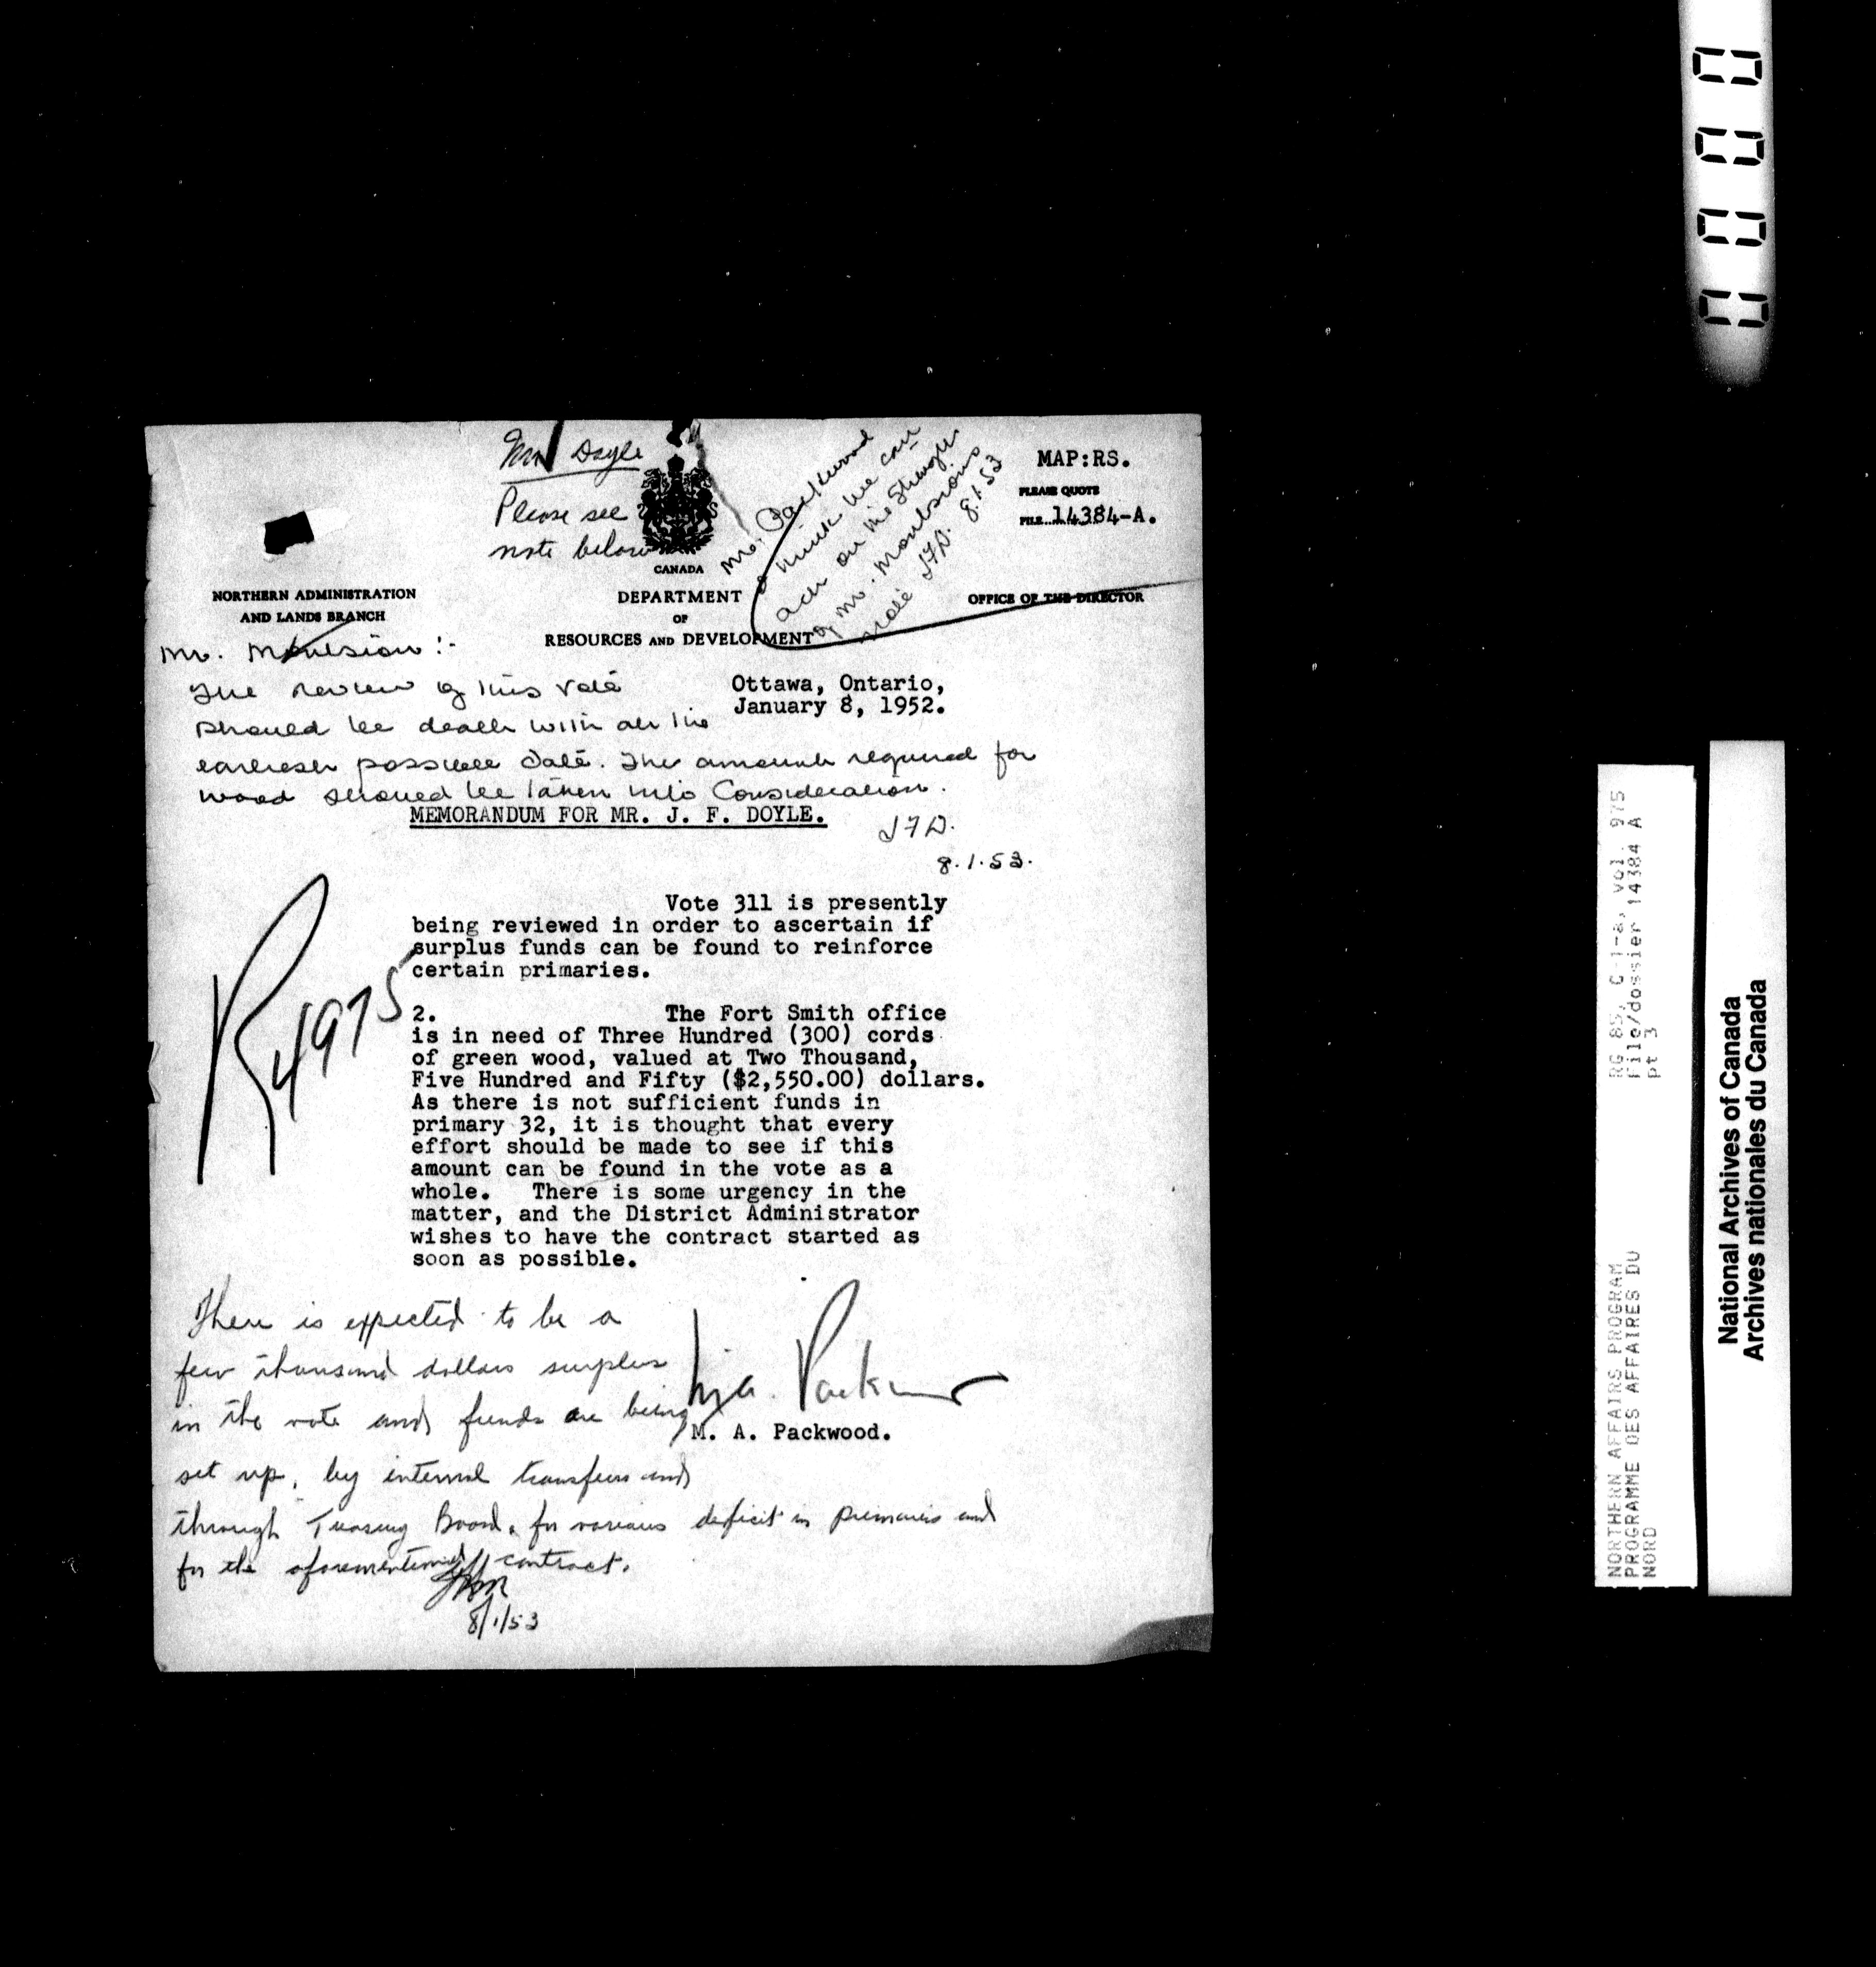 Mr Doyle
Please see
note below
Mr. Packwood
I think we can
act on the strength
of Mr. Moulsion's
note JFD. 8.1.53
MAP:RS.
PLEASE QUOTE
FILE 14384-A.
CANADA
NORTHERN ADMINISTRATION
AND LANDS BRANCH
DEPARTMENT
OF
RESOURCES AND DEVELOPMENT
OFFICE OF THE DIRECTOR
Mr. Moulsion :-
The review of this vote
should be dealt with at the
earliest possible date. The amount required for
wood should be taken into consideration.
JFD.
8.1.53.
Ottawa, Ontario,
January 8, 1952.
MEMORANDUM FOR MR. J. F. DOYLE.
Vote 311 is presently
being reviewed in order to ascertain if
surplus funds can be found to reinforce
certain primaries.
R4975
2. The Fort Smith office
is in need of Three Hundred (300) cords
of green wood, valued at Two Thousand,
Five Hundred and Fifty ($2,550.00) dollars.
As there is not sufficient funds in
primary 32, it is thought that every
effort should be made to see if this
amount can be found in the vote as a
whole. There is some urgency in the
matter, and the District Administrator
wishes to have the contract started as
soon as possible.
M. A. Packwood
M. A. Packwood.
There is expected to be a
few thousand dollars surplus
in the vote and funds are being
set up, by internal transfers and
through Treasury Board, for various deficit in primaries and
for the aforementioned contract.
8/1/53
0000
RG 85, C-1-a, vol. 975
File/dossier 14384 A
pt 3
NORTHERN AFFAIRS PROGRAM
PROGRAMME DES AFFAIRES DU
NORD
National Archives of Canada
Archives nationales du Canada